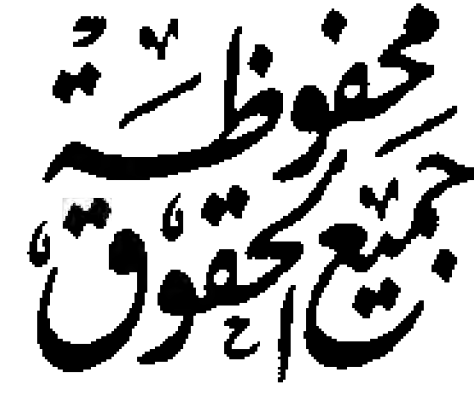 جميع الحقوق
محفوظة